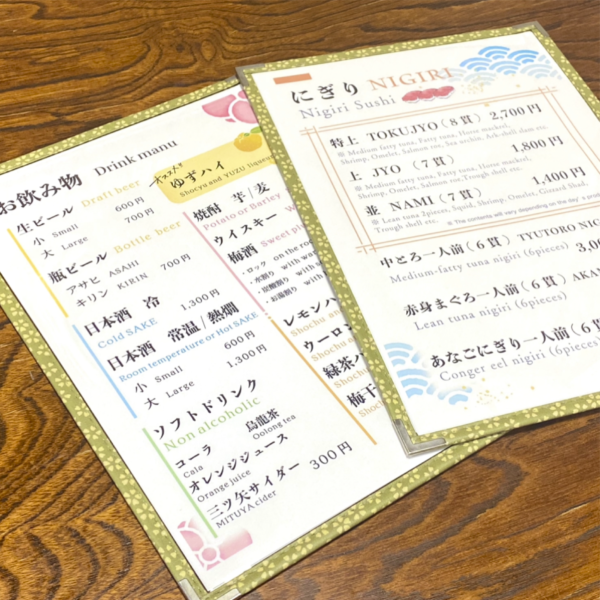 お飲み物 Drink manu
生ビール Draft beer
小 Small 600円
大 Large 700円
瓶ビール Bottle beer
アサヒ ASAHI
キリン KIRIN 700円
日本酒 冷
Cold SAKE 1,300円
日本酒 常温/熱燗
Room temperature or Hot SAKE
小 Small 600円
大 Large 1,300円
ソフトドリンク
Non alcoholic
コーラ 烏龍茶
Cala Oolong tea
オレンジジュース
Orange juice
三ツ矢サイダー 300円
MITUYA cider
オススメ
ゆずハイ
Shocyu and YUZU liqueur
焼酎 芋/麦
Potato or Barley
ウイスキー
梅酒 Sweet
・ロック on the
・水割り with
・炭酸割り with
・お湯割り with
レモンハ
Shochu and
ウーロン
Shochu
緑茶ハ
Shochu
梅干
Shocyu
にぎり NIGIRI
Nigiri Sushi
特上 TOKUJYO（8貫） 2,700円
※ Medium fatty tuna, Fatty tuna, Horse mackerel,
Shrimp, Omelet, Salmon roe, Sea urchin, Ark-shell clam etc.
上 JYO（7貫） 1,800円
※ Medium fatty tuna, Fatty tuna, Horse mackerel,
Shrimp, Omelet, Salmon roe, Trough shell etc.
並 NAMI（7貫） 1,400円
※ Lean tuna 2pieces, Squid, Shrimp, Omelet, Gizzard Shad,
Trough shell etc.
※ The contents will vary depending on the day's
中とろ一人前（6貫） TYUTORO NIG
Medium-fatty tuna nigiri (6pieces) 3,0
赤身まぐろ一人前（6貫） AKAM
Lean tuna nigiri (6pieces)
あなごにぎり一人前（6貫
Conger eel nigiri (6pieces)